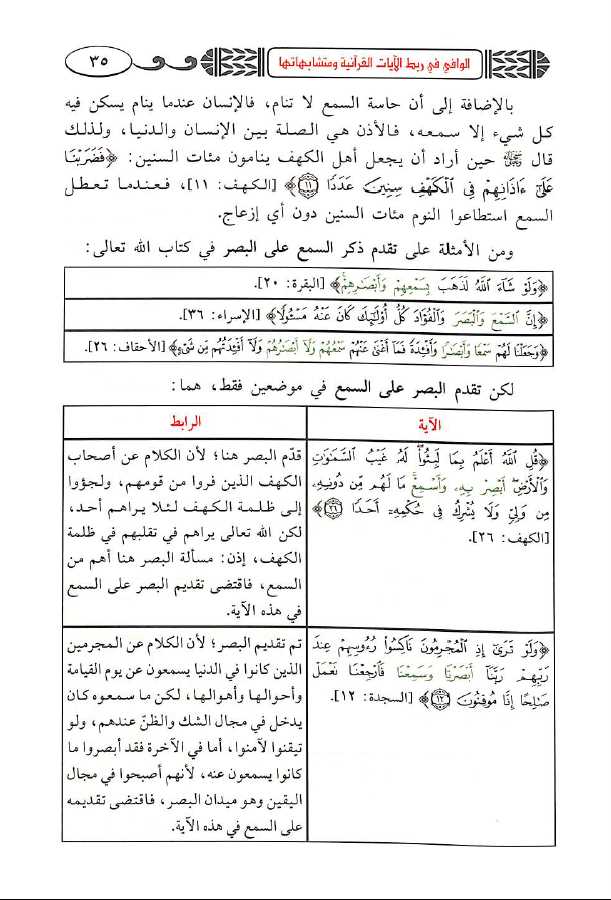 الوافي في ربط الآيات القرآنية ومتشابهاتها
٣٥
بالإضافة إلى أن حاسة السمع لا تنام، فالإنسان عندما ينام يسكن فيه
كل شيء إلا سمعه، فالأذن هي الصلة بين الإنسان والدنيا، ولذلك
قال ﷻ حين أراد أن يجعل أهل الكهف ينامون مئات السنين: ﴿فَضَرَبْنَا
عَلَىٰٓ ءَاذَانِهِمْ فِى ٱلْكَهْفِ سِنِينَ عَدَدًا ١١﴾ [الكهف: ١١]، فعندما تعطل
السمع استطاعوا النوم مئات السنين دون أي إزعاج.
ومن الأمثلة على تقدم ذكر السمع على البصر في كتاب الله تعالى:
﴿وَلَوْ شَآءَ ٱللَّهُ لَذَهَبَ بِسَمْعِهِمْ وَأَبْصَٰرِهِمْ﴾ [البقرة: ٢٠].
﴿إِنَّ ٱلسَّمْعَ وَٱلْبَصَرَ وَٱلْفُؤَادَ كُلُّ أُو۟لَٰٓئِكَ كَانَ عَنْهُ مَسْـُٔولًا﴾ [الإسراء: ٣٦].
﴿وَجَعَلْنَا لَهُمْ سَمْعًا وَأَبْصَٰرًا وَأَفْـِٔدَةً فَمَآ أَغْنَىٰ عَنْهُمْ سَمْعُهُمْ وَلَآ أَبْصَٰرُهُمْ وَلَآ أَفْـِٔدَتُهُم مِّن شَىْءٍ﴾ [الأحقاف: ٢٦].
لكن تقدم البصر على السمع في موضعين فقط، هما:
الآية
الرابط
﴿قُلِ ٱللَّهُ أَعْلَمُ بِمَا لَبِثُوا۟ لَهُۥ غَيْبُ ٱلسَّمَٰوَٰتِ
وَٱلْأَرْضِ أَبْصِرْ بِهِۦ وَأَسْمِعْ مَا لَهُم مِّن دُونِهِۦ
مِن وَلِىٍّ وَلَا يُشْرِكُ فِى حُكْمِهِۦٓ أَحَدًا ٢٦﴾
[الكهف: ٢٦].
قدّم البصر هنا؛ لأن الكلام عن أصحاب
الكهف الذين فروا من قومهم، ولجؤوا
إلى ظلمة الكهف لئلا يراهم أحد،
لكن الله تعالى يراهم في تقلبهم في ظلمة
الكهف، إذن: مسألة البصر هنا أهم من
السمع، فاقتضى تقديم البصر على السمع
في هذه الآية.
﴿وَلَوْ تَرَىٰٓ إِذِ ٱلْمُجْرِمُونَ نَاكِسُوا۟ رُءُوسِهِمْ عِندَ
رَبِّهِمْ رَبَّنَآ أَبْصَرْنَا وَسَمِعْنَا فَٱرْجِعْنَا نَعْمَلْ
صَٰلِحًا إِنَّا مُوقِنُونَ ١٢﴾ [السجدة: ١٢].
تم تقديم البصر؛ لأن الكلام عن المجرمين
الذين كانوا في الدنيا يسمعون عن يوم القيامة
وأحوالها وأهوالها، لكن ما سمعوه كان
يدخل في مجال الشك والظنّ عندهم، ولو
تيقنوا لآمنوا، أما في الآخرة فقد أبصروا ما
كانوا يسمعون عنه، لأنهم أصبحوا في مجال
اليقين وهو ميدان البصر، فاقتضى تقديمه
على السمع في هذه الآية.